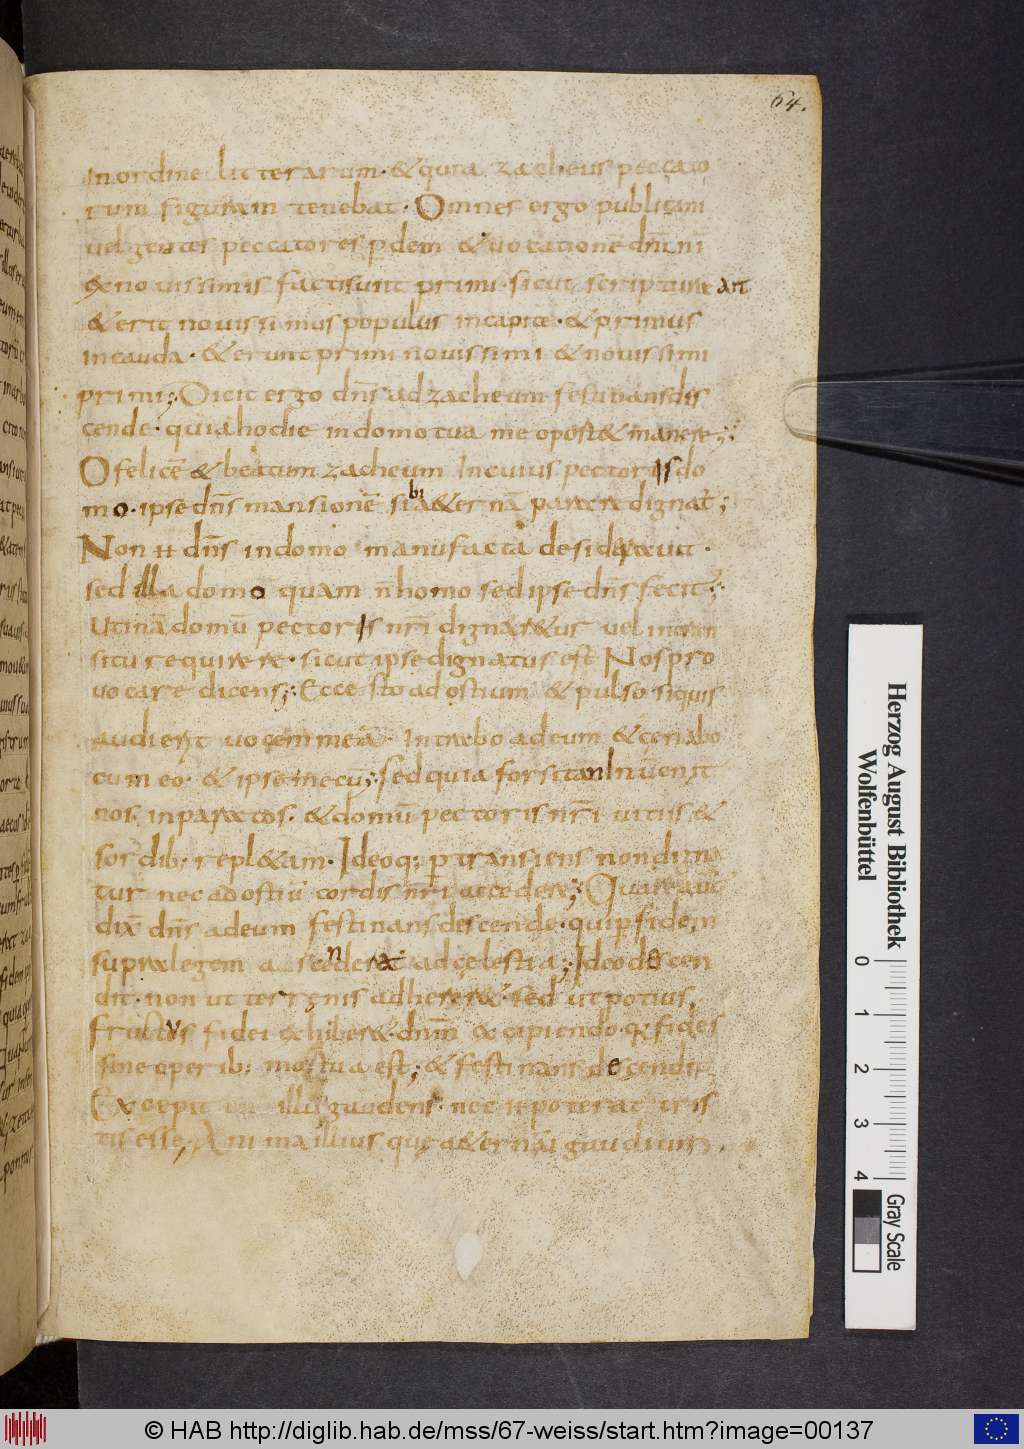 64.
In ordine litterarum. & quia zacheus peccato
rum figuram tenebat. Omnes ergo publicani
uel gentes peccatores ꝑ fidem & uocatione dn̄i nr̄i
& nouissimis facti sunt primi. sicut scriptura ait
& erit nouissimus populus in capite. & primus
in cauda. & erunt primi nouissimi & nouissimi
primi; Dicit ergo dn̄s ad zacheum festinans dis
cende. quia hodie in domo tua me oport& manere;
O felicē & beatum zacheum In cuius pectoris do
mo. ipse dn̄s mansionē sibi a&ernā parare dignat̄;
Non ÷ dn̄s in domo manufacta desiderauit.
sed illa domo quam n̄ homo sed ipse dn̄s fecit;
Utinā domū pectoris nr̄i dignar&ur uel in tran
situ requirere. sicut ipse dignatus est Nos pro
uocare dicens; Ecce sto ad ostium & pulso si quis
audierit uocem meā. Intrabo ad eum & cenabo
cum eo. & ipse mecū; sed quia forsitan Inuenit
nos. in paratos. & domū pectoris nr̄i uitiis &
sordib; repl&am. Ideoq; ꝑtransiens non digna
tur nec ad ostiū cordis nr̄i accedere; Quare aut̄
dix̄ dn̄s ad eum festinans descende. qui ꝑ fidem
supra legem ascenderat ad celestia; Ideo descen
dit. non ut terrenis adherer&. sed ut potius
fructus fidei exhiber&. dn̄m excipiendo. q̄ fides
sine operib; mortua est; & festinans descendit
Excepit illū gaudens. nec ÷ poterat tris
tis esse; Anima illius quę a&ernū gaudium
© HAB http://diglib.hab.de/mss/67-weiss/start.htm?image=00137
Herzog August Bibliothek
Wolfenbüttel
0 1 2 3 4
Gray Scale